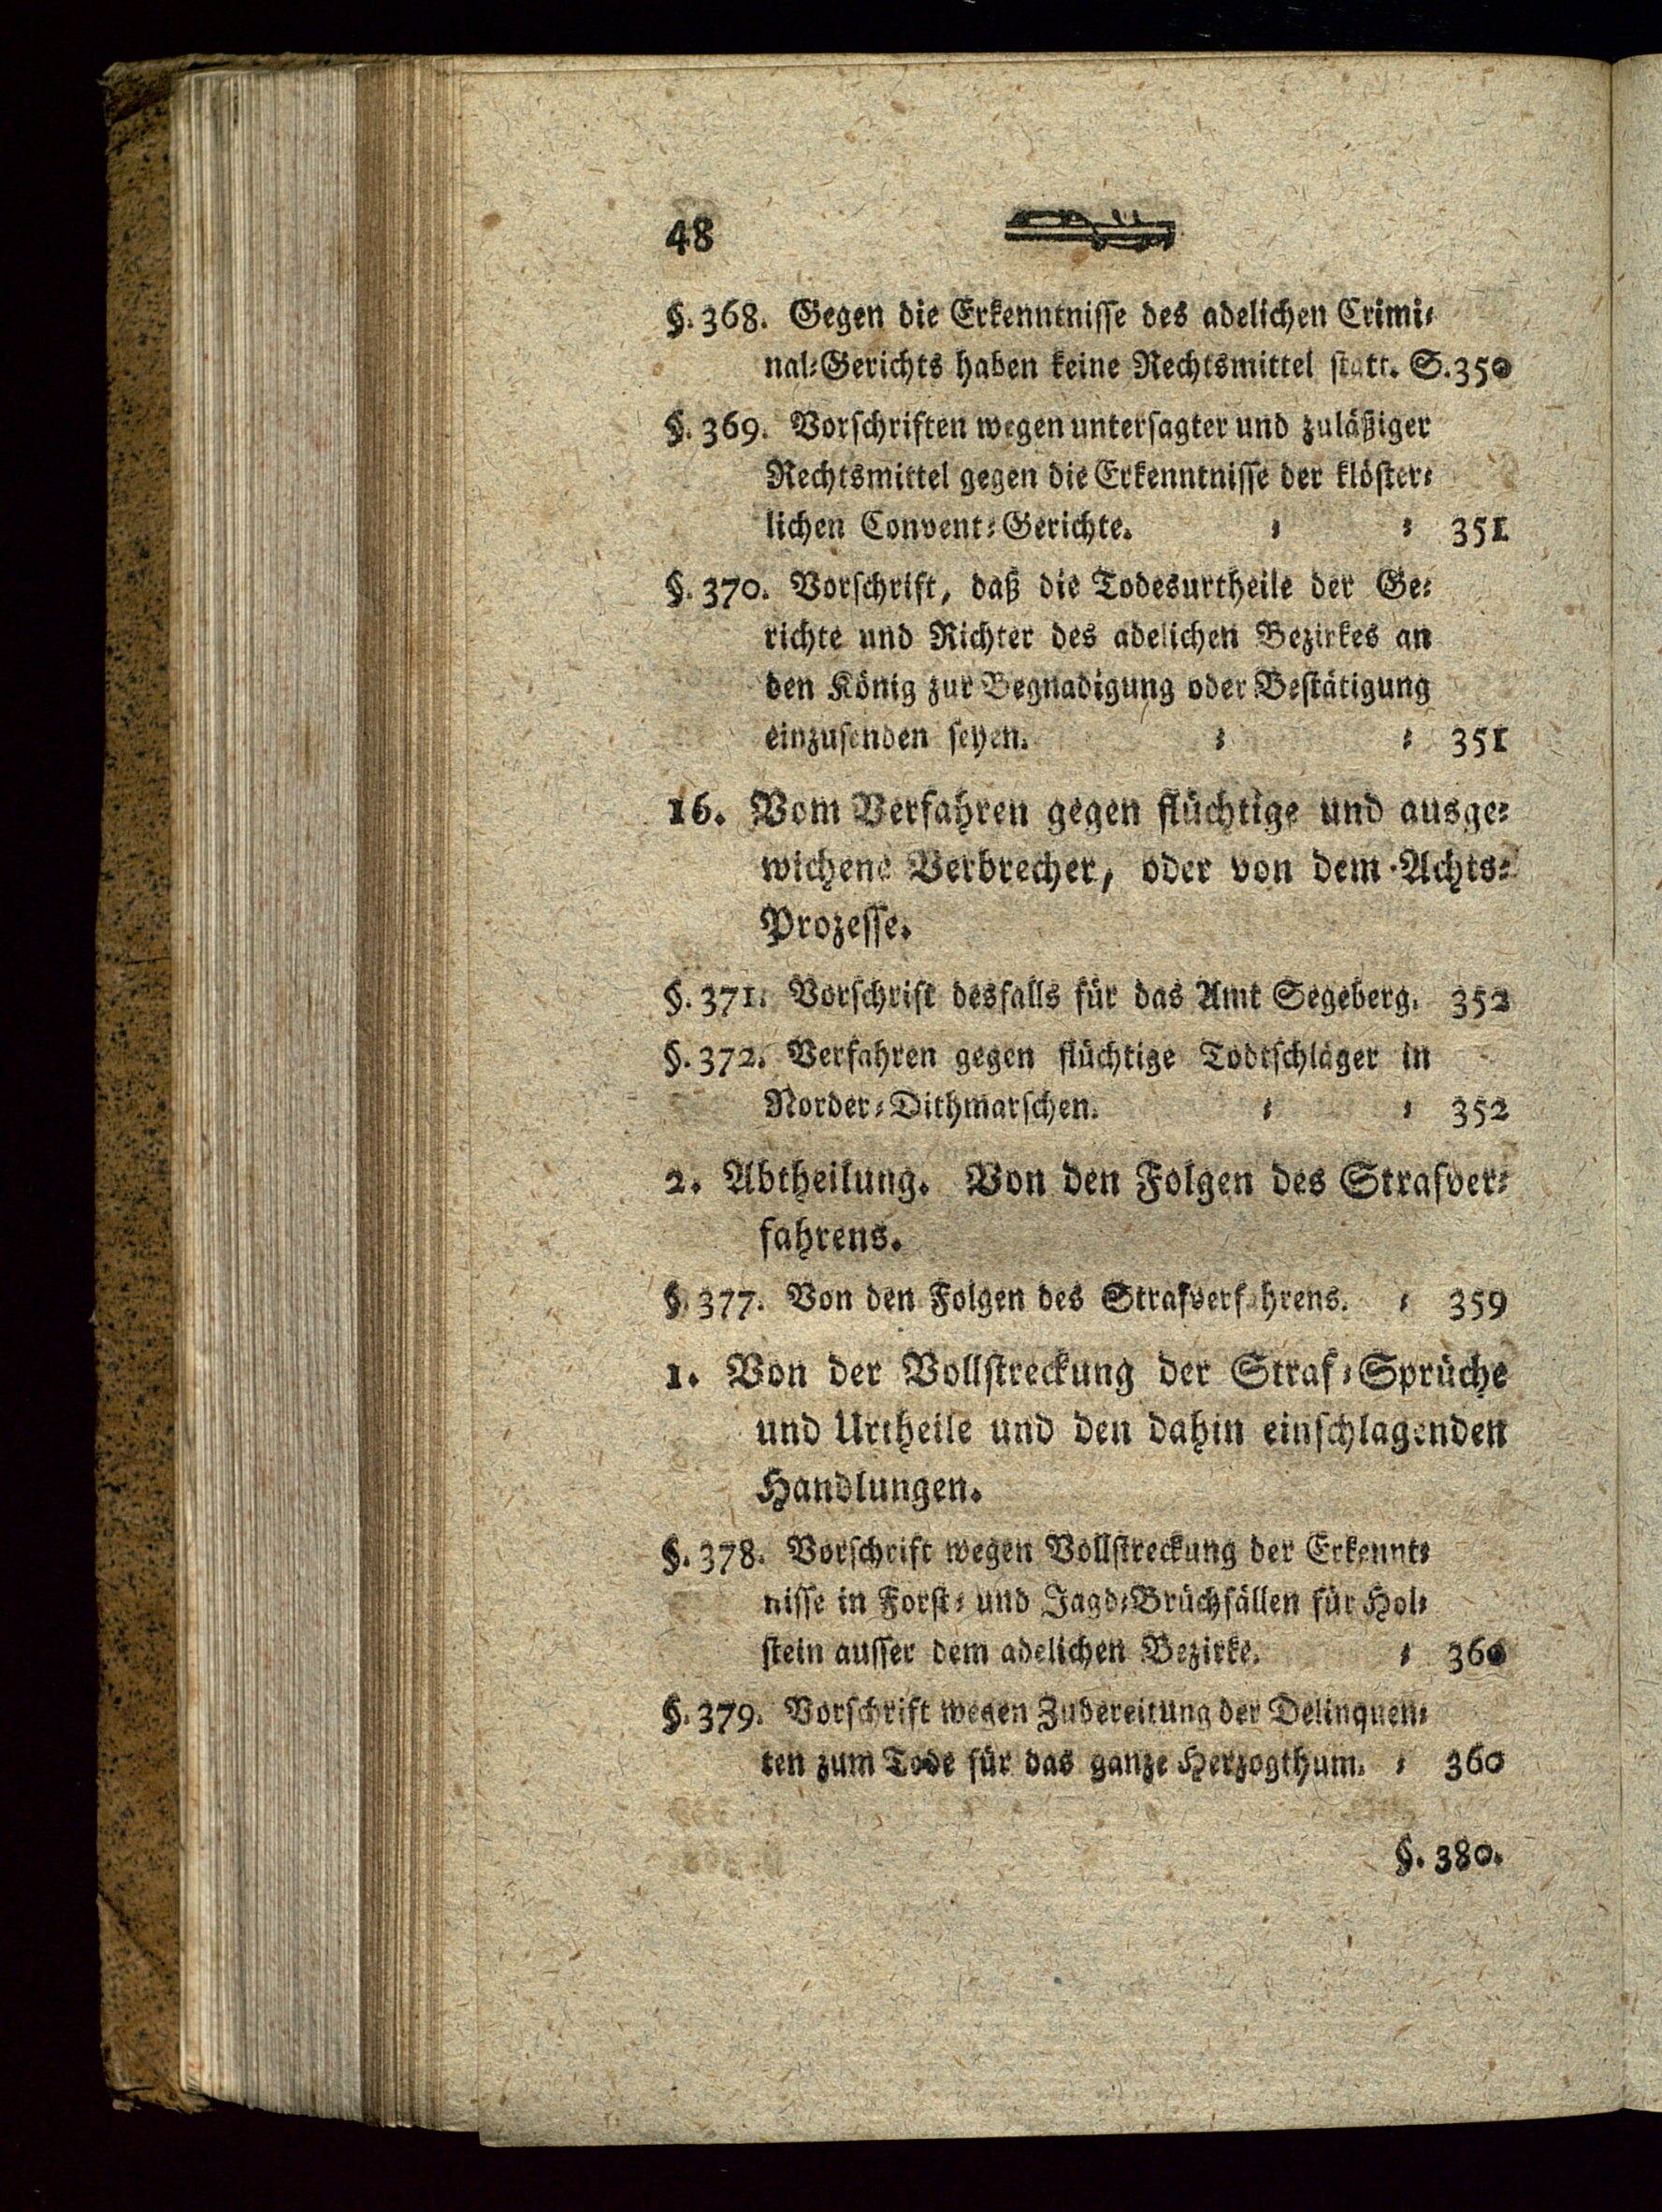 48
§. 368. Gegen die Erkenntnisse des adelichen Crimi⸗
nal⸗Gerichts haben keine Rechtsmittel statt. S. 350
§. 369. Vorschriften wegen untersagter und zuläßiger
Rechtsmittel gegen die Erkenntnisse der klöster⸗
lichen Convent⸗Gerichte. ⸗ ⸗ 351
§. 370. Vorschrift, daß die Todesurtheile der Ge⸗
richte und Richter des adelichen Bezirkes an
den König zur Begnadigung oder Bestätigung
einzusenden seyen. ⸗ ⸗ 351
16. Vom Verfahren gegen flüchtige und ausge⸗
wichene Verbrecher, oder von dem Achts⸗
Prozesse.
§. 371. Vorschrift desfalls für das Amt Segeberg. 352
§. 372. Verfahren gegen flüchtige Todtschläger in
Norder⸗Dithmarschen. ⸗ ⸗ 352
2. Abtheilung. Von den Folgen des Strafver⸗
fahrens.
§. 377. Von den Folgen des Strafverfahrens. ⸗ 359
1. Von der Vollstreckung der Straf⸗Sprüche
und Urtheile und den dahin einschlagenden
Handlungen.
§. 378. Vorschrift wegen Vollstreckung der Erkennt⸗
nisse in Forst⸗ und Jagd⸗Brüchfällen für Hol⸗
stein ausser dem adelichen Bezirke. ⸗ 360
§. 379. Vorschrift wegen Zubereitung der Delinquen⸗
ten zum Tode für das ganze Herzogthum. ⸗ 360
§. 380.